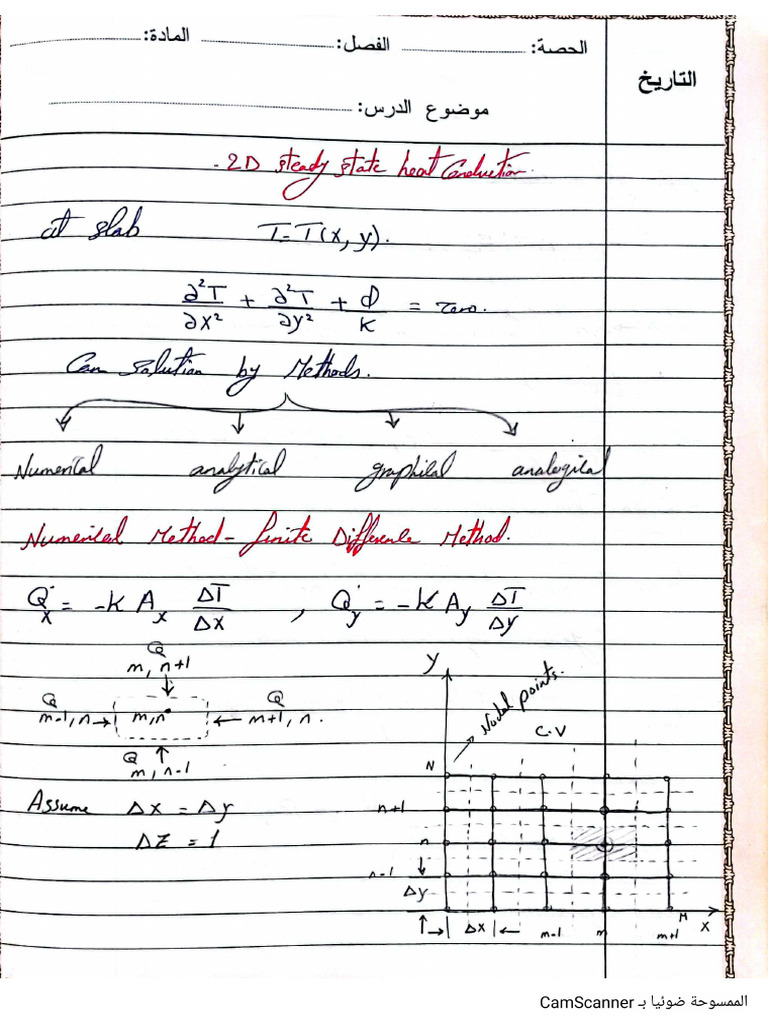 الحصة: الفصل: المادة:
التاريخ
موضوع الدرس:
- 2D steady state heat Conduction.
at slab T=T(x, y).
∂²T/∂x² + ∂²T/∂y² + q̇/K = zero.
Can Solution by Methods.
Numerical analytical graphical analogical
Numerical Method - finite Difference Method.
Q̇x = -K Ax ΔT/Δx , Q̇y = -K Ay ΔT/Δy
Q
m, n+1
Q
m-1, n
m,n
Q
m+1, n.
Q
m, n-1
Assume Δx = Δy
ΔZ = 1
y
Nodal points.
C.V
N
n+1
n
n-1
Δy
Δx
m-1
m
m+1
M
x
الممسوحة ضوئيا بـ CamScanner